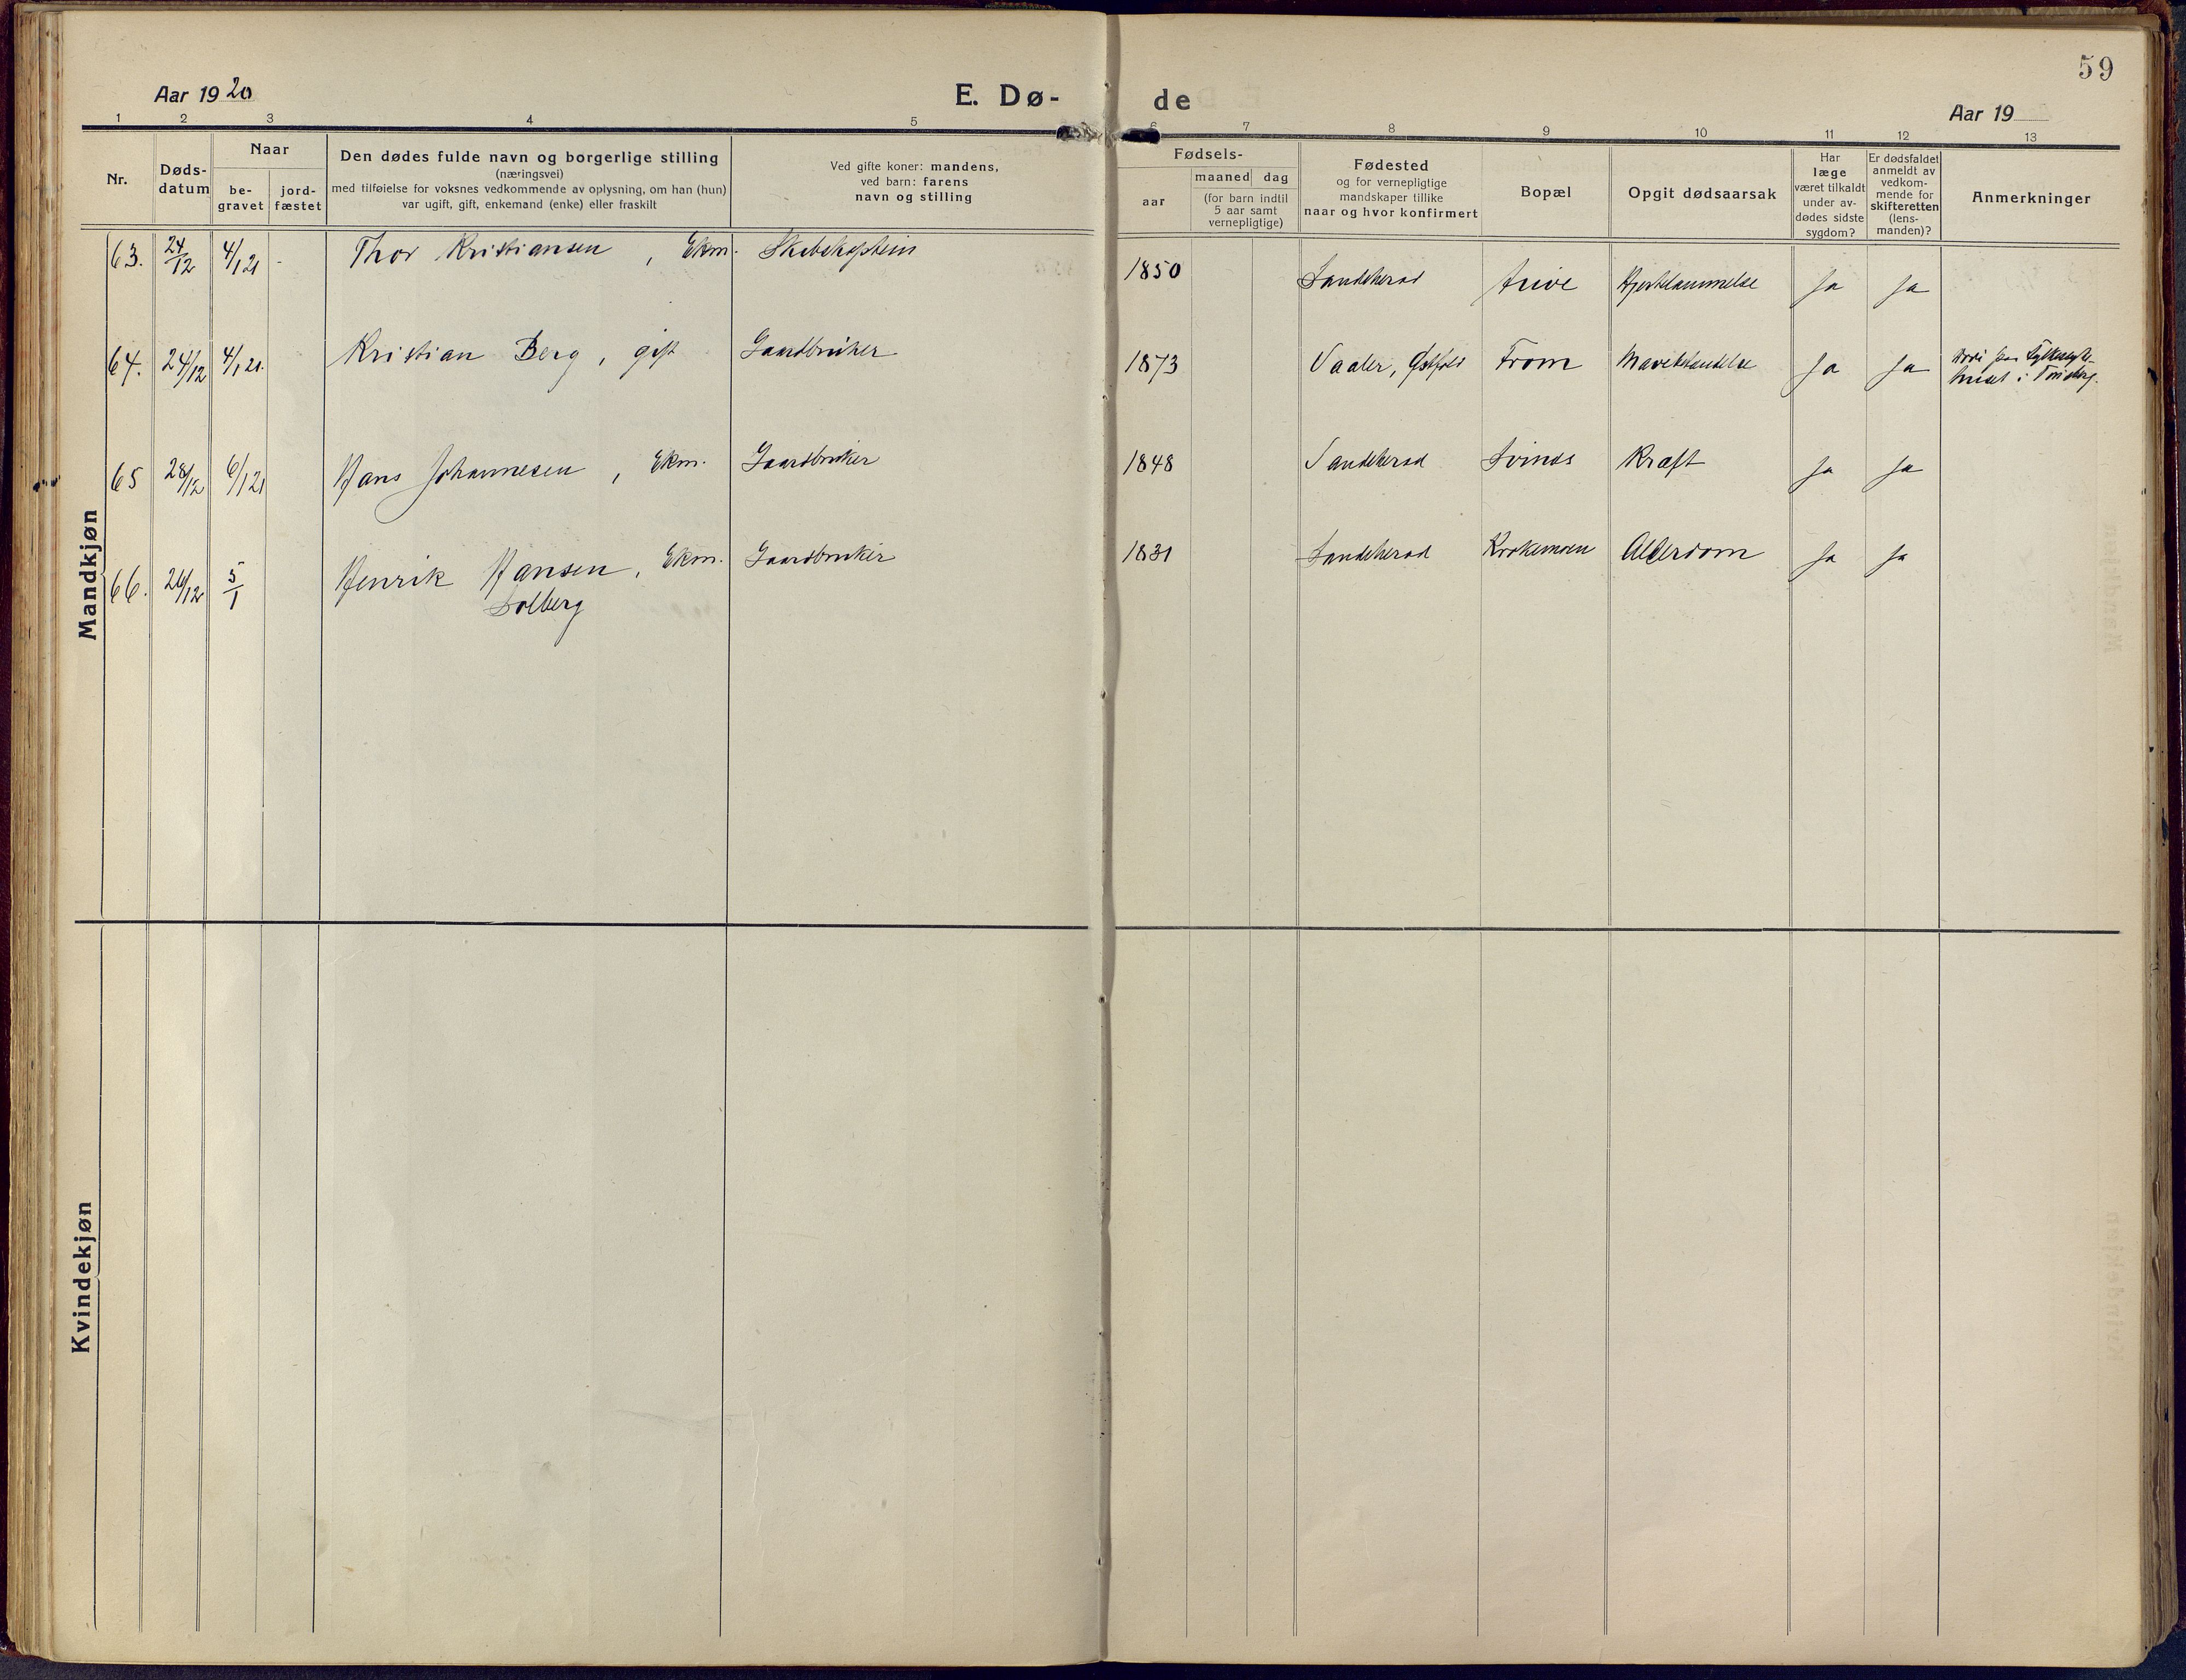 59
Aar 19 20
E. Dø-
de
Aar 19
1 2 3 4 5 6 7 8 9 10 11 12 13
Nr.
Døds-
datum
Naar
be-
gravet
jord-
fæstet
Den dødes fulde navn og borgerlige stilling
(næringsvei)
med tilføielse for voksnes vedkommende av oplysning, om han (hun)
var ugift, gift, enkemand (enke) eller fraskilt
Ved gifte koner: mandens,
ved barn: farens
navn og stilling
Fødsels-
aar
maaned dag
(for barn indtil
5 aar samt
vernepligtige)
Fødested
og for vernepligtige
mandskaper tillike
naar og hvor konfirmert
Bopæl
Opgit dødsaarsak
Har
læge
været tilkaldt
under av-
dødes sidste
sygdom?
Er dødsfaldet
anmeldt av
vedkom-
mende for
skifteretten
(lens-
manden)?
Anmerkninger
Mandkjøn
63. 24/12 4/1 21 - Thor Kristiansen, Ekm. 1850 Sandeherad Hjertelammelse Ja Ja
64. 24/12 4/1 21. Kristian Berg, gift Gaardbruker 1873 Vaaler, Østfold From Ja Ja
Døde paa Fylkessyke-
huset i Tønsberg.
65 28/12 6/1 21 Hans Johannesen, Ekm. Gaardbruker 1848 Sandeherad Kræft Ja Ja
66. 26/12 5/1 Henrik Hansen, Ekm. Gaardbruker 1831 Sandeherad Krokemoen Alderdom Ja Ja
Solberg
Kvindekjøn